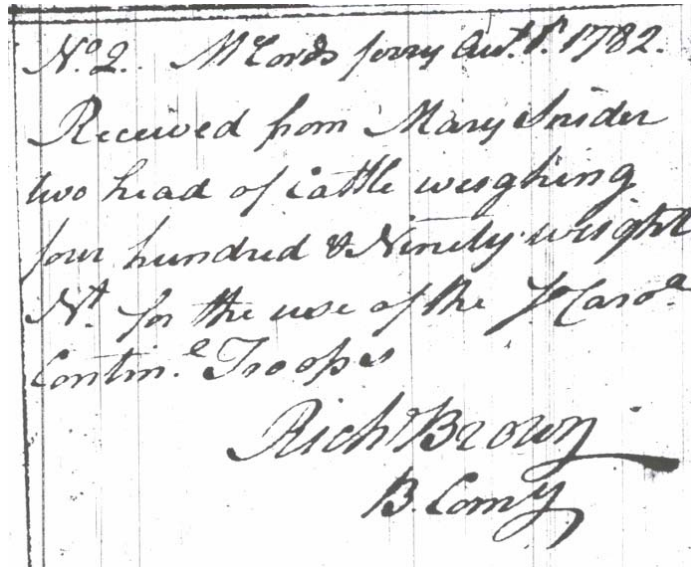 No. 2. McCords ferry Aut. 1st. 1782.
Received from Mary Snider
two head of Cattle weighing
four hundred & Ninety weight
Nt. for the use of the So Carola
Contine. Troops
Richd Brown
B. Comy